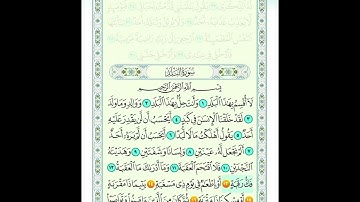 سورة البلد
بسم الله الرحمن الرحيم
لا أقسم بهذا البلد ١ وأنت حل بهذا البلد ٢ ووالد وما ولد
٣ لقد خلقنا الإنسان في كبد ٤ أيحسب أن لن يقدر عليه
أحد ٥ يقول أهلكت مالا لبدا ٦ أيحسب أن لم يره أحد
٧ ألم نجعل له عينين ٨ ولسانا وشفتين ٩ وهديناه
النجدين ١٠ فلا اقتحم العقبة ١١ وما أدراك ما العقبة ١٢
فك رقبة ١٣ أو إطعام في يوم ذي مسغبة ١٤ يتيما ذا مقربة
١٥ أو مسكينا ذا متربة ١٦ ثم كان من الذين آمنوا وتواصوا